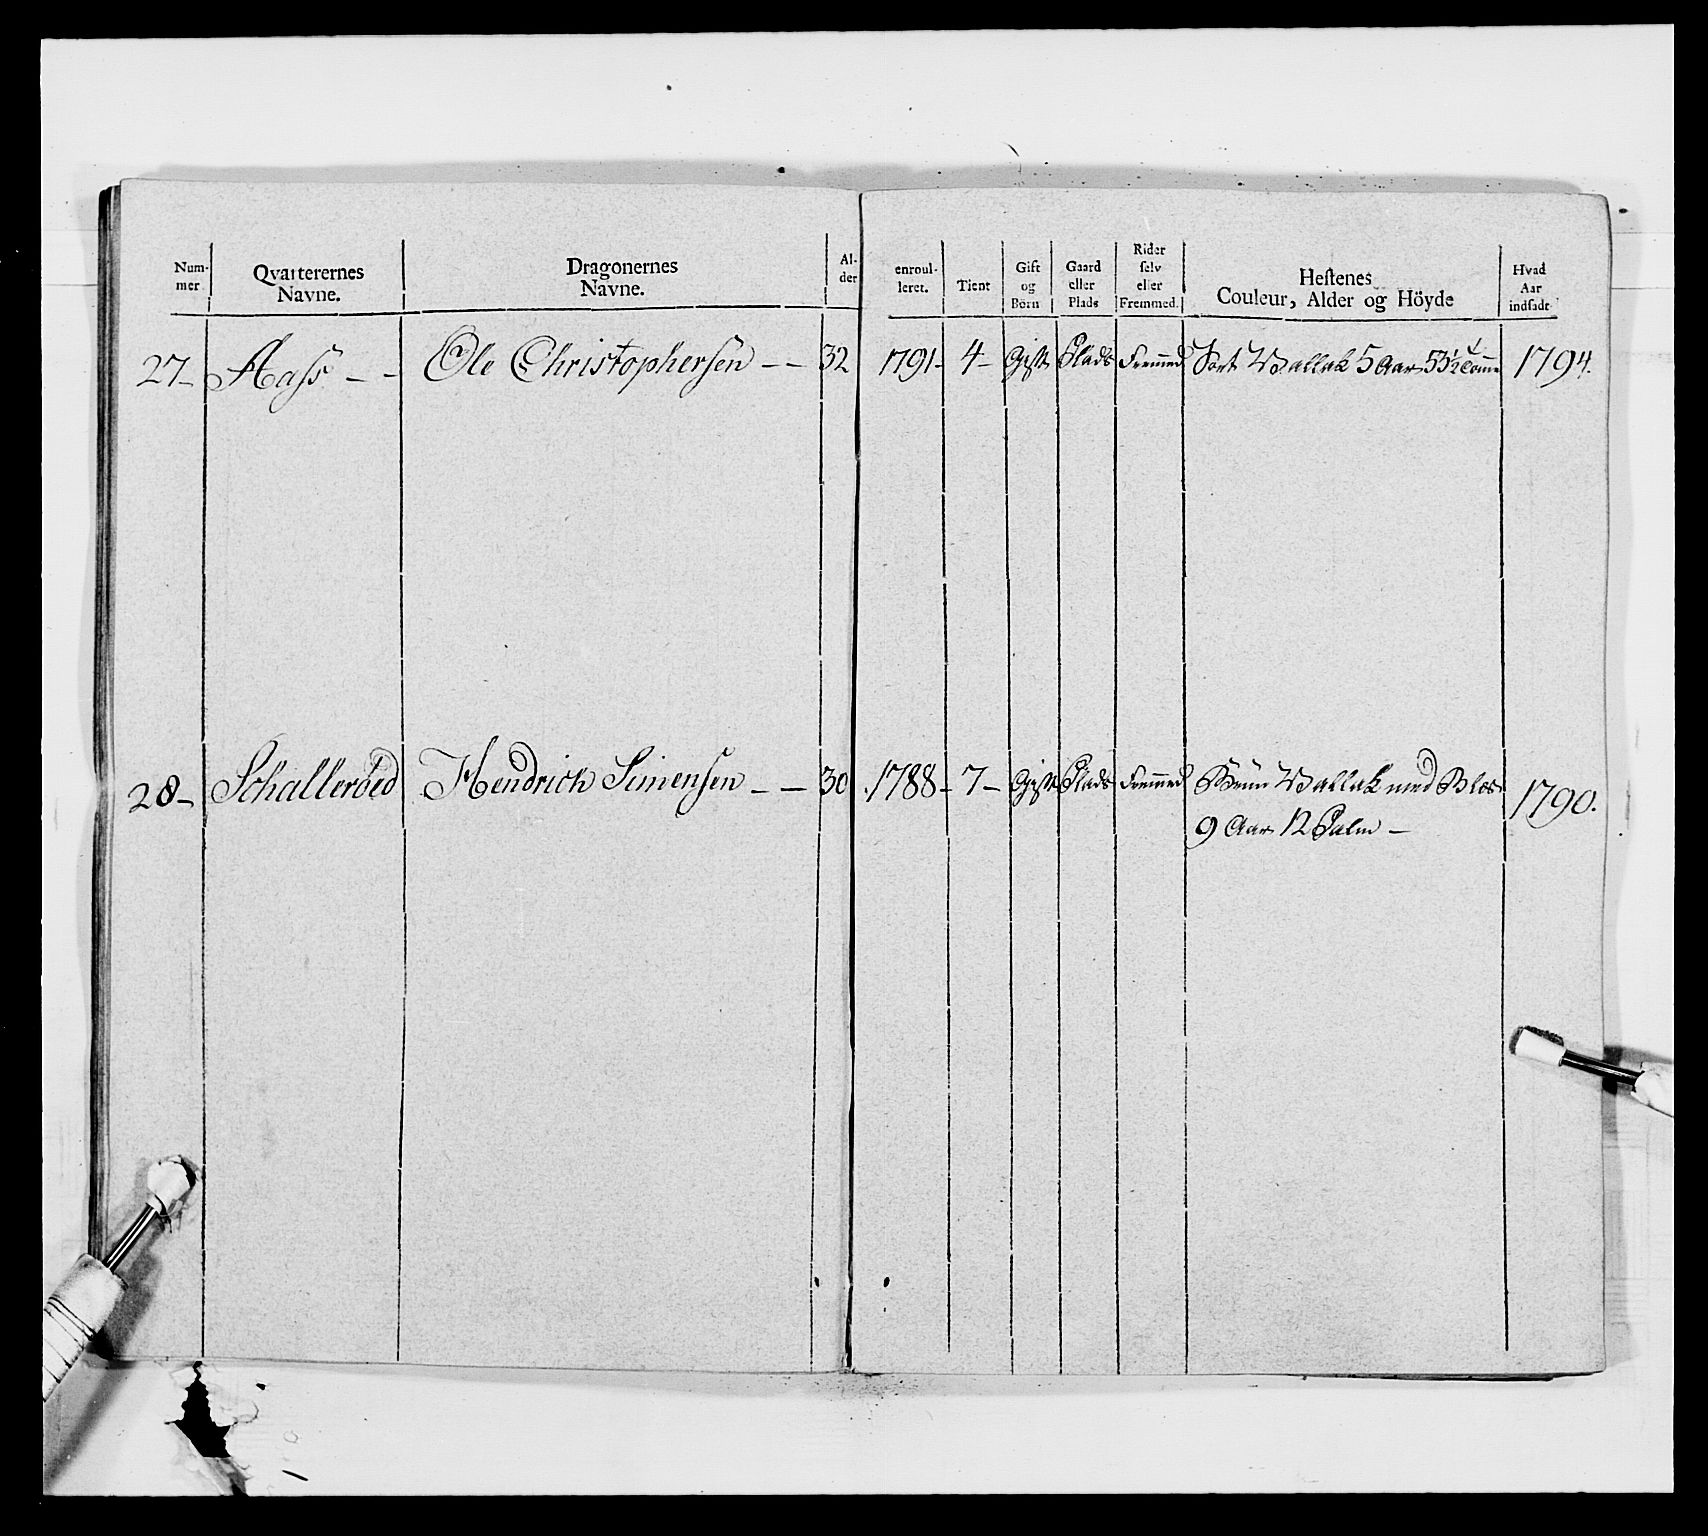 Num-
mer
Qvarterernes
Navne.
Dragonernes
Navne.
Al-
der
enroul-
leret.
Tient
Gift
og
Børn
Gaard
eller
Plads
Rider
selv
eller
Fremmed.
Hestenes
Couleur, Alder og Höyde
Hvad
Aar
indsadt
27- Aass - - Ole Christophersen - - 32 1791- 4- Gift Plads Fremmed Sort Vallak 5 Aar 53½ Tomme 1794.
28- Schalleröed Hendrich Simensen - - 30 1788- 7- Gift Plads Fremmed Bruun Vallak med Blos 1790.
9 Aar 12 Palm -